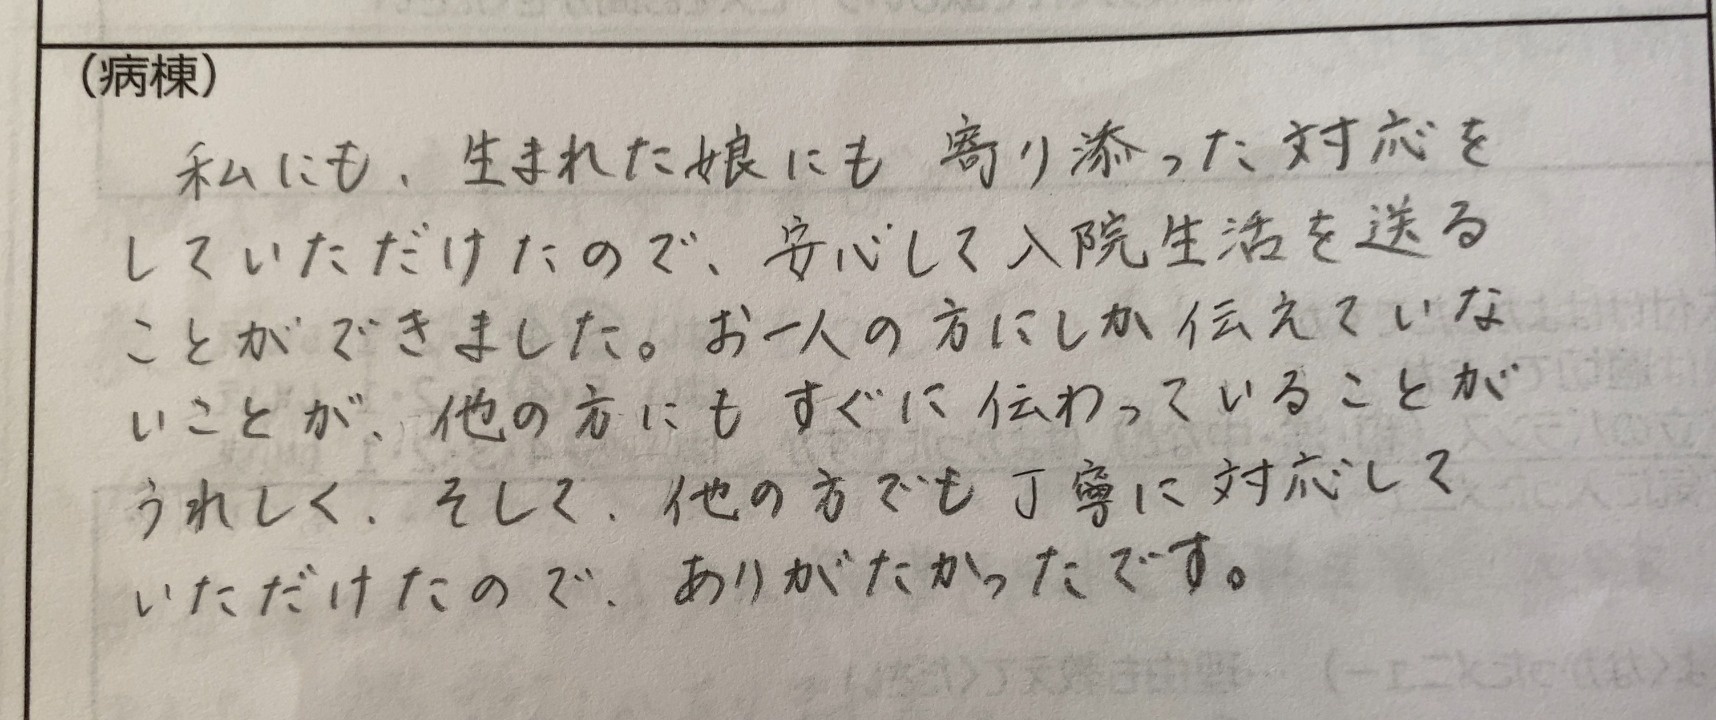 (病棟)
私にも、生まれた娘にも 寄り添った対応を
していただけたので、安心して入院生活を送る
ことができました。お一人の方にしか伝えていな
いことが、他の方にもすぐに伝わっていることが
うれしく、そして、他の方でも丁寧に対応して
いただけたので、ありがたかったです。